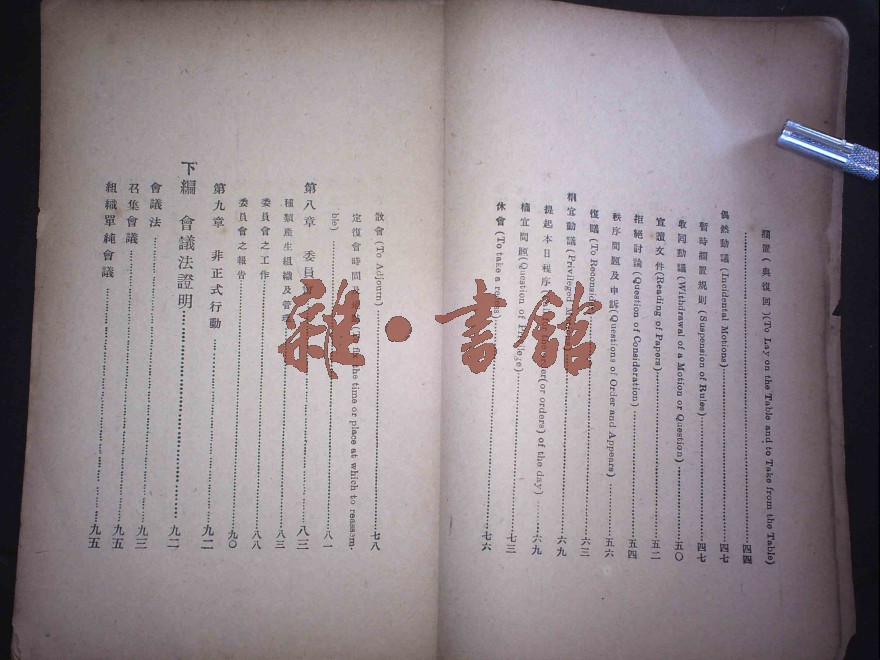 擱置(與復回)(To Lay on the Table and to Take from the Table)
四四
偶然動議(Incidental Motions) 四七
暫時擱置規則(Suspension of Rules) 四七
收回動議(Withdrawal of a Motion or Question) 五〇
宣讀文件(Reading of Papers) 五二
拒絕討論(Question of Consideration) 五四
秩序問題及申訴(Questions of Order and Appears) 五六
復議(To Reconsider) 六三
權宜動議(Privileged Motions) 六九
提起本日程序 order(or orders) of the day) 六九
權宜問題(Question of Privilege) 七三
休會(To take a recess) 七六
散會(To Adjourn) 七八
定復會時間 the time or place at which to reassem-
ble) 八一
第八章 委員 八三
種類產生組織及管理 八三
委員會之工作 八八
委員會之報告 九〇
第九章 非正式行動 九二
下編 會議法證明 九二
會議法 九三
召集會議 九五
組織單純會議 九五
雜·書館